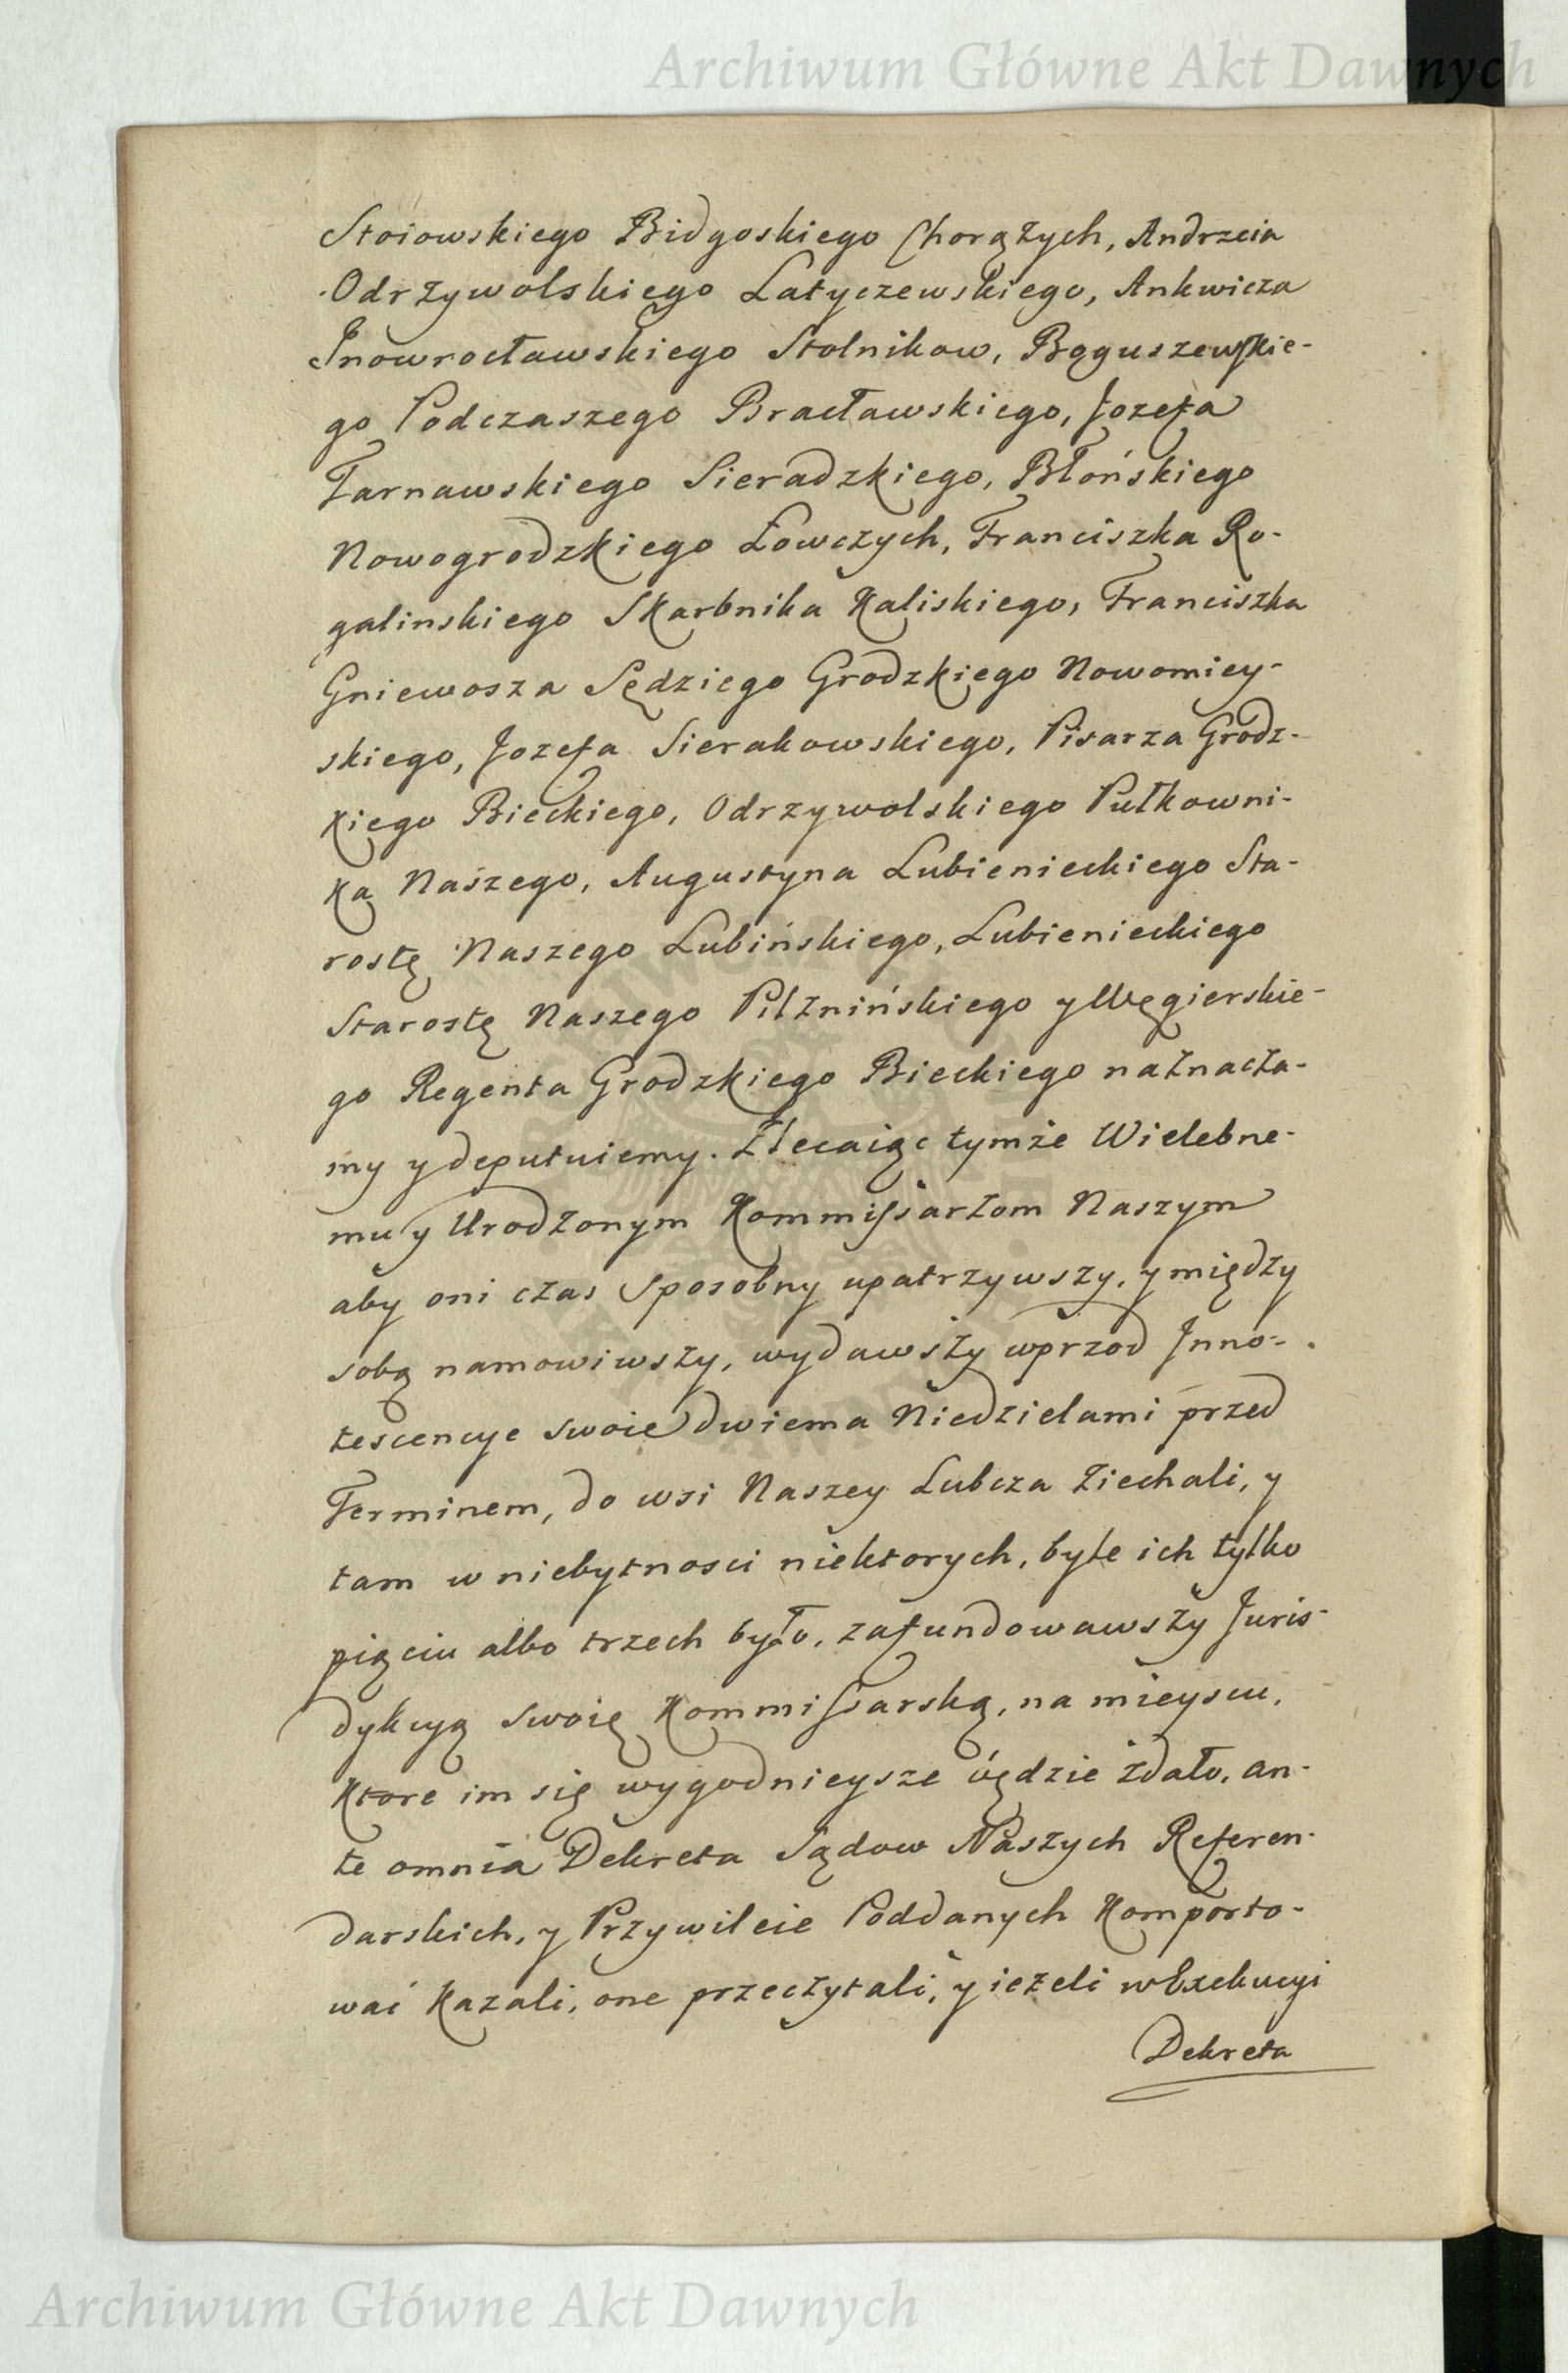 Archiwum Główne Akt Dawnych
Stoiowskiego Bidgoskiego Chorążych, Andrzeia
Odrzywolskiego Latyczewskiego, Ankwicza
Inowrocławskiego Stolnikow, Boguszewskie-
go Podczaszego Bracławskiego, Jozefa
Tarnawskiego Sieradzkiego, Błońskiego
Nowogrodzkiego Łowczych, Franciszka Ro-
galinskiego Skarbnika Kaliskiego, Franciszka
Gniewosza Sędziego Grodzkiego Nowomiey-
skiego, Jozefa Sierakowskiego, Pisarza Grodz-
kiego Bieckiego, Odrzywolskiego Pułkowni-
ka Naszego, Augustyna Lubienieckiego Sta-
rostę Naszego Lubińskiego, Lubienieckiego
Starostę Naszego Pilznińskiego y Węgierskie-
go Regenta Grodzkiego Bieckiego naznacza-
my y deputuiemy. Zlecaiąc tymże Wielebne-
mu y Urodzonym Kommissarzom Naszym
aby oni czas sposobny upatrzywszy, y między
sobą namowiwszy, wydawszy wprzod Inno-
tescencye swoie dwiema Niedzielami przed
Terminem, do wsi Naszey Lubcza ziechali, y
tam w niebytnosci niektorych, byle ich tylko
pięciu albo trzech było, zafundowawszy Juris-
dykcyą swoię Kommissarską, na mieyscu,
ktore im się wygodnieysze będzie zdało, an-
te omnia Dekreta Sądow Naszych Referen-
darskich, y Przywileie Poddanych Komporto-
wać kazali, one przeczytali, y ieżeli w Exekucyi
Dekreta
Archiwum Główne Akt Dawnych